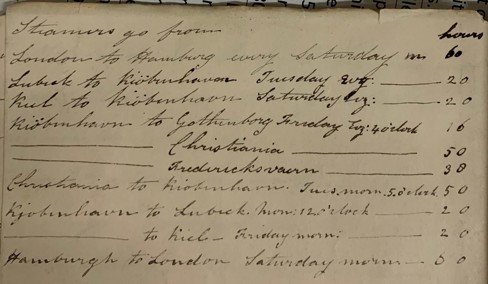 Steamers go from hours
London to Hamburg every Saturday m 60
Lubeck to Kiöbenhavn Tuesday evg: —— 20
Kiel to Kiöbenhavn Saturday Evg: —— 20
Kiöbenhavn to Gothenborg Friday Evg: 4 o'clock 16
—— Christiania —— 50
Fredericksvaern —— 38
Christiania to Kiobenhavn. Tues. morn. 5. o'clock, 50
Kjobenhavn to Lubeck. Mon: 12 o'clock —— 20
—— to Kiel — Friday morn: —— 20
Hamburgh to London Saturday morn —